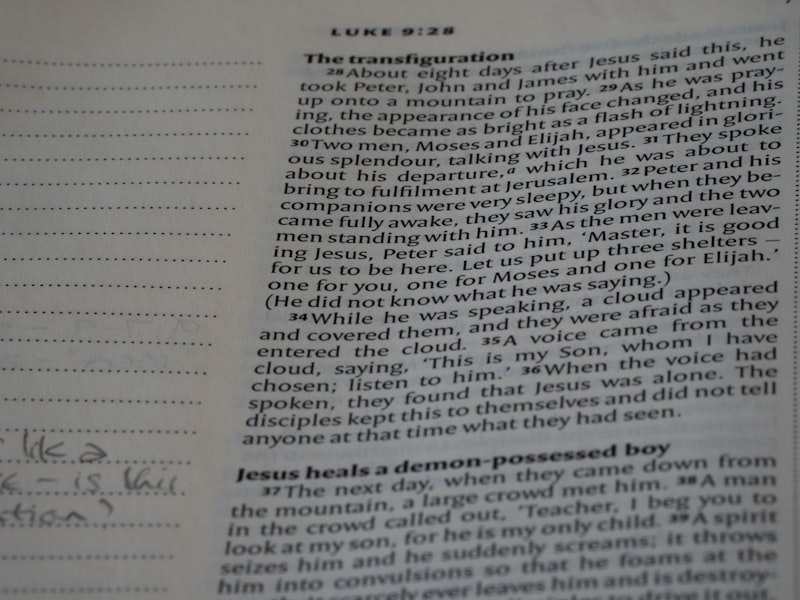 LUKE 9:28
The transfiguration
28 About eight days after Jesus said this, he
took Peter, John and James with him and went
up onto a mountain to pray. 29 As he was pray-
ing, the appearance of his face changed, and his
clothes became as bright as a flash of lightning.
30 Two men, Moses and Elijah, appeared in glori-
ous splendour, talking with Jesus. 31 They spoke
about his departure,a which he was about to
bring to fulfilment at Jerusalem. 32 Peter and his
companions were very sleepy, but when they be-
came fully awake, they saw his glory and the two
men standing with him. 33 As the men were leav-
ing Jesus, Peter said to him, ‘Master, it is good
for us to be here. Let us put up three shelters –
one for you, one for Moses and one for Elijah.’
(He did not know what he was saying.)
34 While he was speaking, a cloud appeared
and covered them, and they were afraid as they
entered the cloud. 35 A voice came from the
cloud, saying, ‘This is my Son, whom I have
chosen; listen to him.’ 36 When the voice had
spoken, they found that Jesus was alone. The
disciples kept this to themselves and did not tell
anyone at that time what they had seen.
Jesus heals a demon-possessed boy
37 The next day, when they came down from
the mountain, a large crowd met him. 38 A man
in the crowd called out, ‘Teacher, I beg you to
look at my son, for he is my only child. 39 A spirit
seizes him and he suddenly screams; it throws
him into convulsions so that he foams at the
scarcely ever leaves him and is destroy-
to drive it out,
like a
– is this